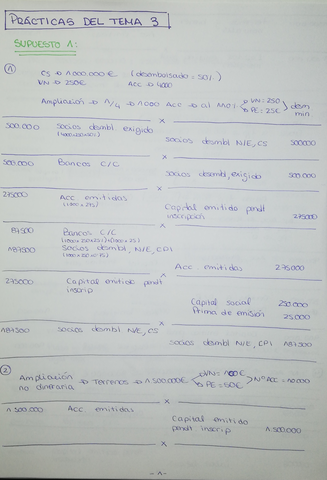 PRÁCTICAS DEL TEMA 3
SUPUESTO 1:
①
CS → 1000.000€ (desembolsado = 50%)
VN → 250€ Acc → 4000
Ampliación → 1/4 → 1000 Acc → al 110% VN = 250 PE = 25€ desm min
x
500.000 Socios desmbl exigido
(4000×250×50%)
Socios desmbl N/E, CS 500000
x
500.000 Bancos C/C
Socios desmbl, exigido 500.000
x
275000 Acc emitidas
(1000 × 275)
Capital emitido pendt inscripción 275000
x
87500 Bancos C/C
187500 Socios desmbl, N/E, CPI
Acc emitidas 275.000
x
275000 Capital emitido pendt inscrip
Capital social 250.000
Prima de emisión 25.000
x
187500 Socios desmbl N/E, CS
Socios desmbl N/E, CPI 187500
②
Ampliación no dineraria → Terceros → 1500.000€ VN = 100€ PE = 50€ Nº Acc = 10.000
x
1500.000 Acc emitidas
Capital emitido pendt inscrip 1.500.000
x
- 1 -